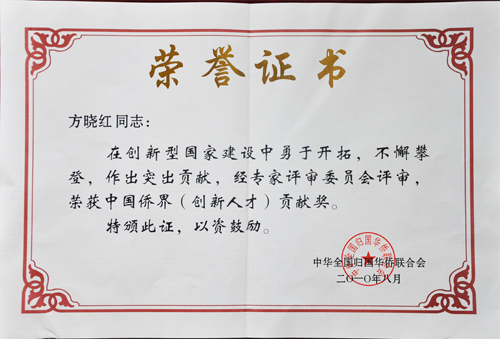 荣誉证书
方晓红同志：
在创新型国家建设中勇于开拓，不懈攀
登，作出突出贡献，经专家评审委员会评审，
荣获中国侨界（创新人才）贡献奖。
特颁此证，以资鼓励。
中华全国归国华侨联合会
二〇一〇年八月